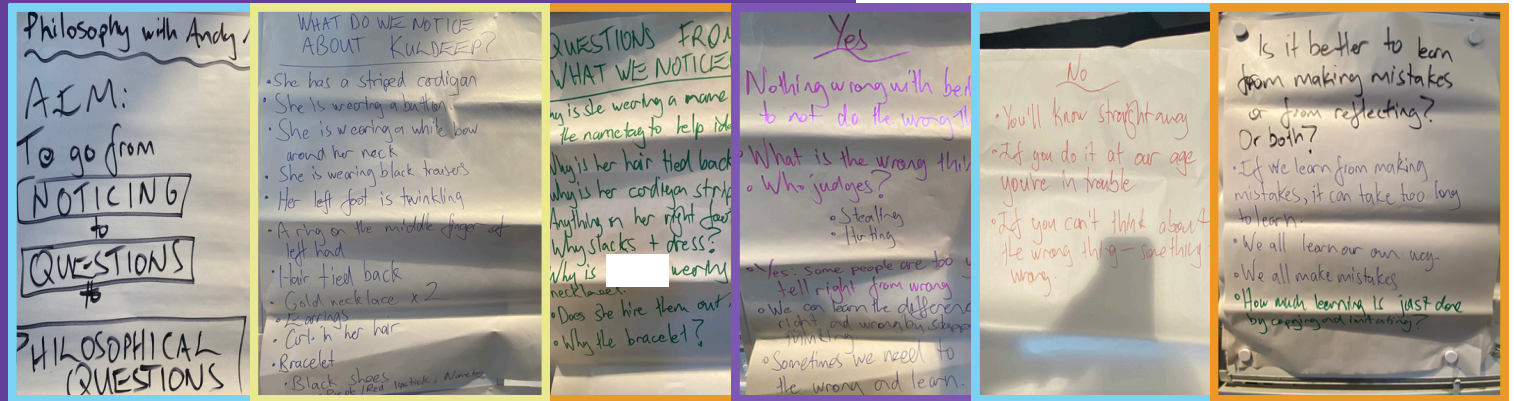 Philosophy with Andy
AIM:
To go from
NOTICING
to
QUESTIONS
to
PHILOSOPHICAL
QUESTIONS
WHAT DO WE NOTICE
ABOUT KULDEEP?
• She has a striped cardigan
• She is wearing a button
• She is wearing a white bow
around her neck
• She is wearing black trousers
• Her left foot is twinkling
• A ring on the middle finger of
left hand
• Hair tied back
• Gold necklace x 2
• Earrings
• Curl in her hair
• Bracelet
• Black shoes
Red lipstick,
QUESTIONS FROM
WHAT WE NOTICE
is she wearing a name
the nametag to help
Why is her hair tied back
Why is her cardigan
Anything on her right foot
Why slacks + dress?
Why is wearing
necklaces?
• Does she hire them out
• Why the bracelet?
Yes
Nothing wrong with
to not do the wrong
• What is the wrong
• Who judges?
• Stealing
• Hurting
• Yes: some people are too
tell right from wrong
• We can learn the
right and wrong by
thinking
• Sometimes we need to
the wrong and learn.
No
• You'll know straight away
• If you do it at our age
you're in trouble
• If you can't think about
the wrong thing – something
wrong.
Is it better to learn
from making mistakes
or from reflecting?
Or both?
• If we learn from making
mistakes, it can take too long
to learn.
• We all learn our own way.
• We all make mistakes
• How much learning is just done
by copying and imitating?